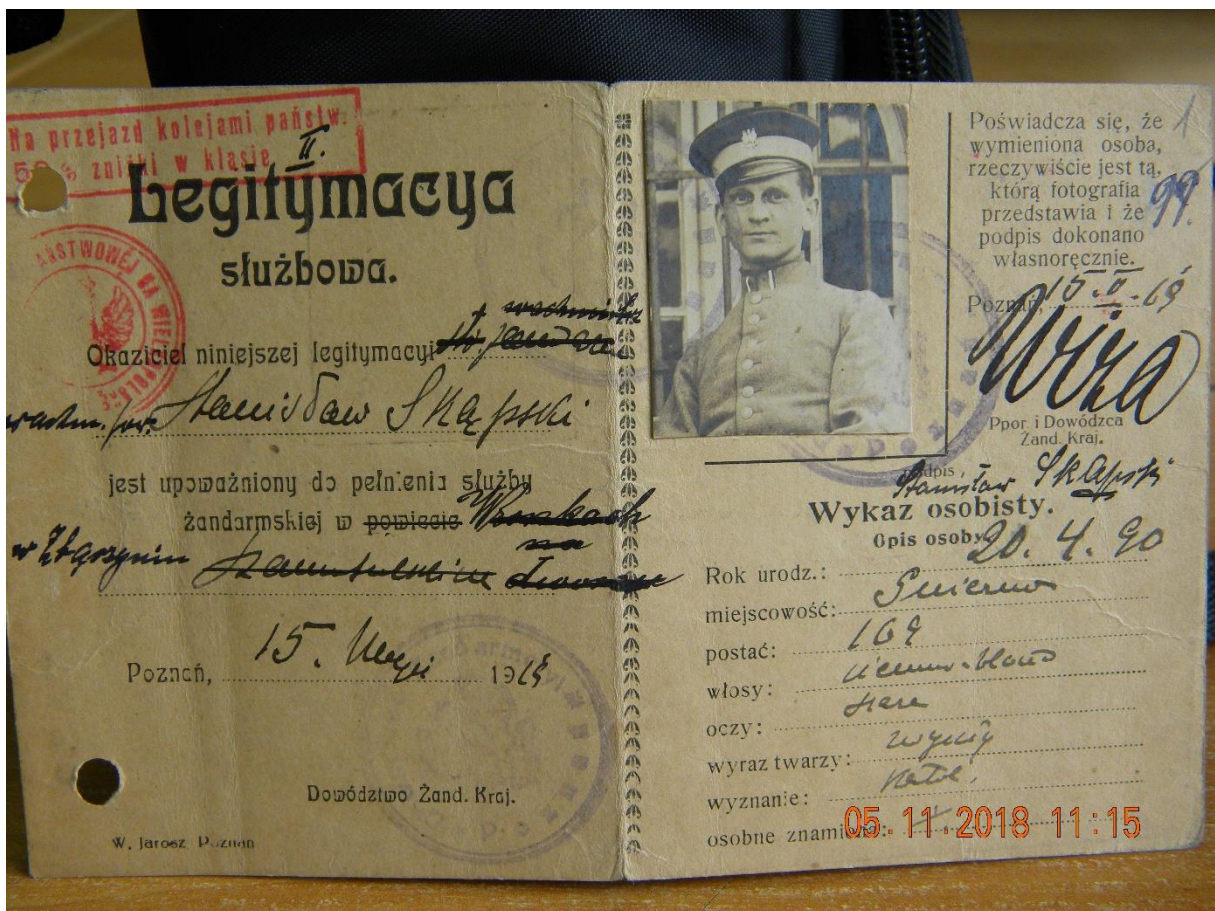 Na przejazd kolejami państw.
50 % zniżki w klasie II.
Legitymacya
służbowa.
Okaziciel niniejszej legitymacyi
wachmistrz
Stanisław Skąpski
jest upoważniony do pełnienia służby
żandarmskiej w powiecie
w
Poznań, 15. 1919
Dowództwo Żand. Kraj.
W. Jarosz Poznań
1
Poświadcza się, że
wymieniona osoba,
rzeczywiście jest tą,
którą fotografia
przedstawia i że
podpis dokonano
własnoręcznie.
99.
Poznań, 15.II.19
Wiza
Ppor i Dowódzca
Żand. Kraj.
podpis Stanisław Skąpski
Wykaz osobisty.
Opis osoby.
Rok urodz.: 20. 4. 90
miejscowość:
postać: 169
włosy: ciemno-blond
oczy:
wyraz twarzy:
wyznanie: katol.
osobne znamiona:
05.11.2018 11:15